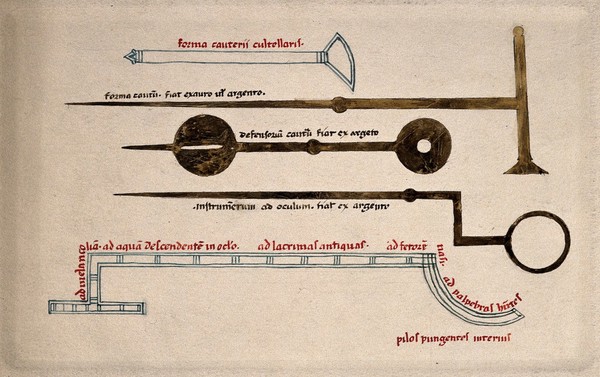 forma cauterii cultellaris.
forma cautīī. fiat ex auro ul' argento.
Defensoriū cautīī fiat ex argeto
.Instrumentum ad oculum. fiat ex argento
ad melanco
liā. ad aquā descendentē in oclo. ad lacrimas antiquas. ad fetorē
nasi.
ad palpebras hītes
pilos pungentes interius